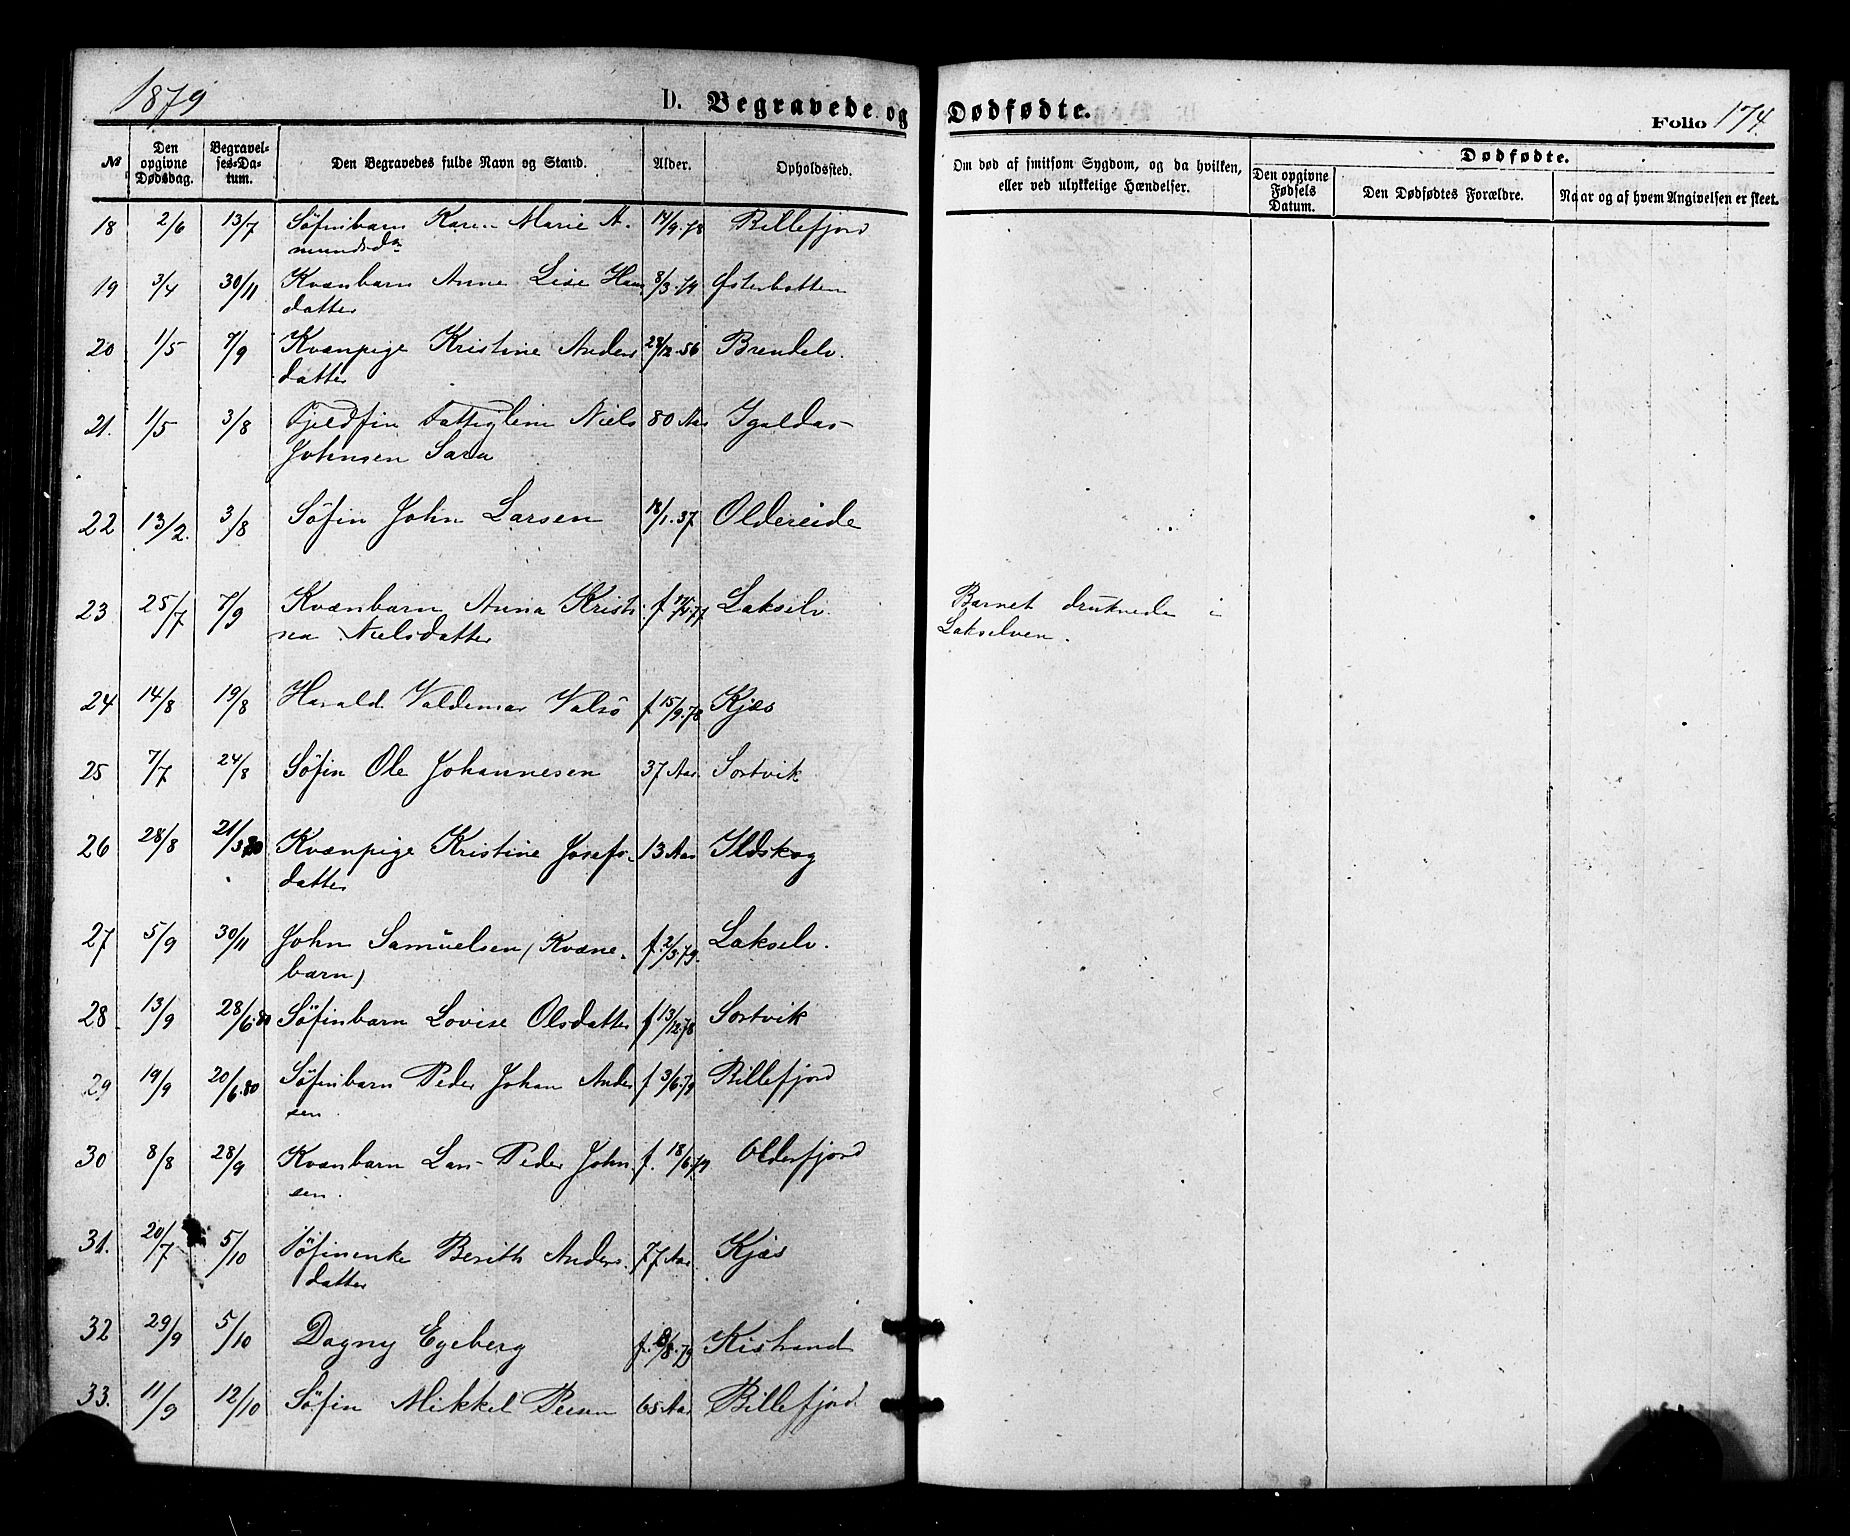 1879
D. Begravede og Dødfødte.
Folio 174
№
Den opgivne Dødsdag.
Begravelses-Datum.
Den Begravedes fulde Navn og Stand.
Alder.
Opholdssted.
Om død af smitsom Sygdom, og da hvilken, eller ved ulykkelige Hændelser.
Dødfødte.
Den opgivne Fødsels Datum.
Den Dødfødtes Forældre.
Naar og af hvem Angivelsen er skeet.
18 2/6 13/7 Söfinbarn Karen Marie A- 14/9.78 Billefjord
mundsda
19 3/4 30/11 Kvænbarn Anna Lise Hans 8/3.79 Østerbotten
datter
20 1/5 7/9 Kvænpige Kristine Anders 28/12.56 Brendelv.
datter
21. 1/5 3/8 Fjeldfin Fattiglem Niels 80 Aar Igaldas
Johnsen Sara
22 13/2. 3/8 Söfin John Larsen 18/1.37 Oldereide
23 25/7 7/9 Kvænbarn Anna Kristi f. 77 Lakselv. Barnet druknede i
na Nielsdatter Lakselven.
24 14/8 19/8 Harald Valdemar Valsö f 15/9.78 Kjæs
25 7/7 24/8 Söfin Ole Johannesen 37 Aar Sortvik
26 28/8 21/3.80 Kvænpige Kristine Josefs- 13 Aar Ildskog
datter
27 5/9 30/11 John Samuelsen (Kvæne- f. 2/3.79. Lakselv.
barn)
28 13/9 28/6.80 Söfinbarn Lovise Olsdatter f 13/12.78 Sortvik
29 19/9 20/6.80 Söfinbarn Peder Johan Ander f 3/6.79 Billefjord
sen.
30 8/8 28/9 Kvænbarn Lars Peder John f. 18/6.79 Olderfjord
sen.
31. 20/7 5/10 Söfinenke Berith Anders. 77 Aar Kjæs
datter
32 29/9 5/10 Dagny Egeberg f. 8/8.79 Kistrand
33. 11/9 12/10 Söfin Mikkel Persen 65 Aar Billefjord